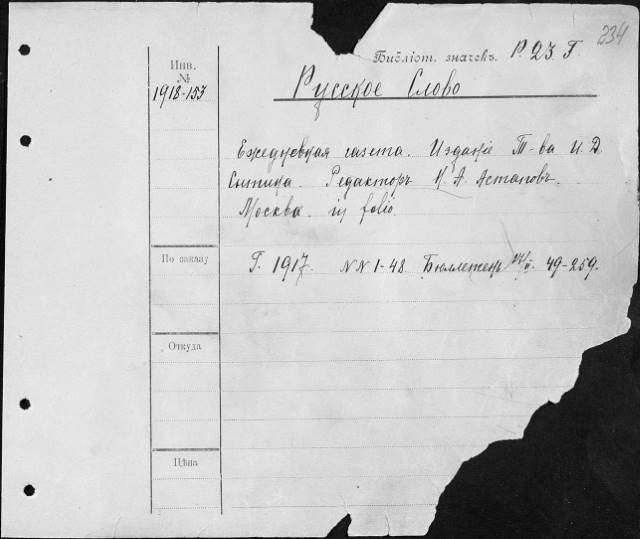 234
Библіот. значекъ. Р. 23. Г.
Инв.
№
1918-153
Русское Слово
Ежедневная газета. Изданіе Т-ва И. Д.
Сытина. Редакторъ Н. А. Астаповъ.
Москва. in folio.
По заказу
Г. 1917. NN 1-48. Бюллетень 49-259.
Откуда
Цѣна